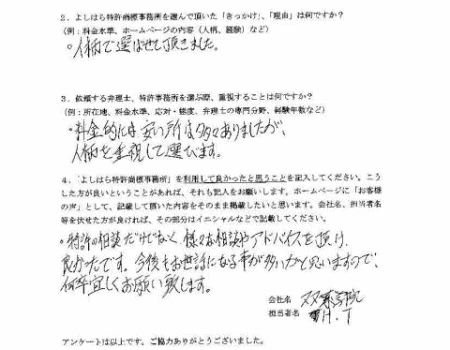 2．よしはら特許商標事務所を選んで頂いた「きっかけ」、「理由」は何ですか？
（例：料金水準、ホームページの内容（人柄、経験）など）
・人柄で選ばせて頂きました。
3．依頼する弁理士、特許事務所を選ぶ際、重視することは何ですか？
（例：所在地、料金水準、応対・態度、弁理士の専門分野、経験年数など）
・料金的には安い所は多々ありましたが、
人柄を重視して選びます。
4．「よしはら特許商標事務所」を利用して良かったと思うことを記入してください。こう
した方が良いということがあれば、それも記入をお願いします。ホームページに「お客様
の声」として、記載して頂いた内容をそのまま掲載したいと思います。会社名、担当者名
等を伏せた方が良ければ、その部分はイニシャルなどで記載してください。
・特許の相談だけでなく、様々な相談やアドバイスを頂け、
良かったです。今後もお世話になる事が多いかと思いますので、
何卒宜しくお願い致します。
会社名
担当者名 H.T
アンケートは以上です。ご協力ありがとうございました。